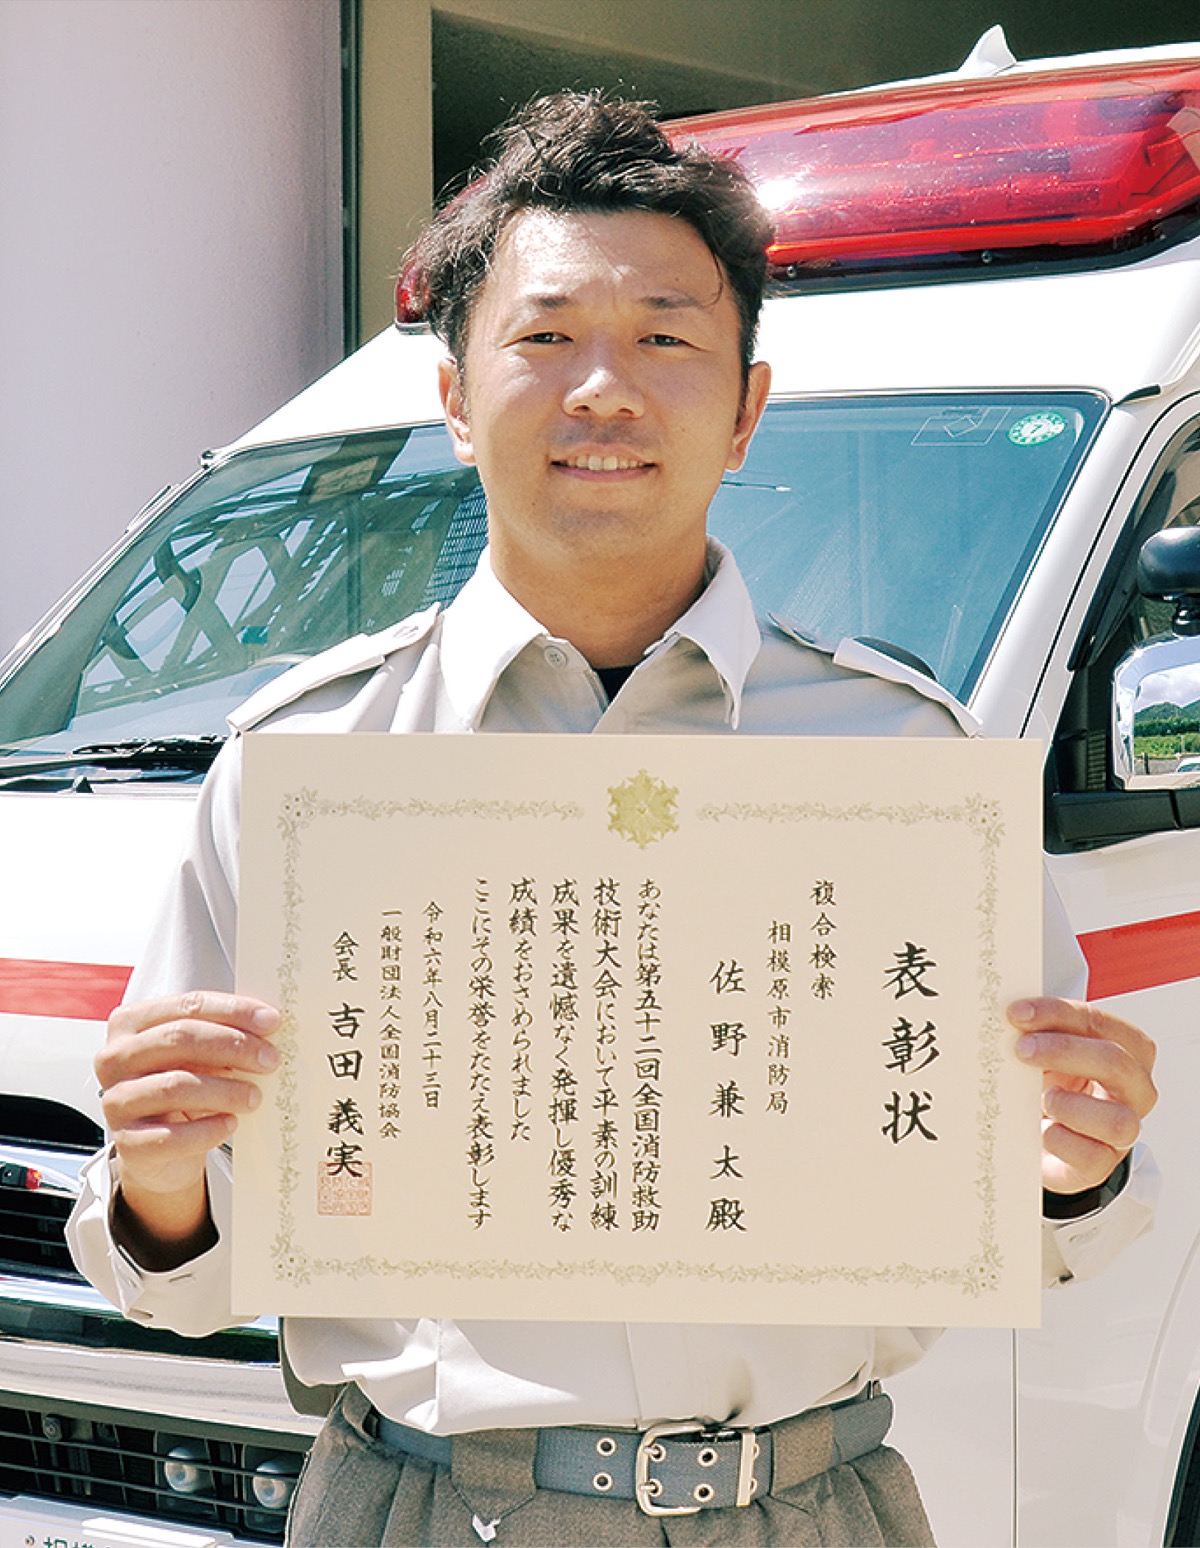 表彰状
複合検索
相模原市消防局
佐野兼太殿
あなたは第五十二回全国消防救助
技術大会において平素の訓練
成果を遺憾なく発揮し優秀な
成績をおさめられました
ここにその栄誉をたたえ表彰します
令和六年八月二十三日
一般財団法人全国消防協会
会長 吉田義実